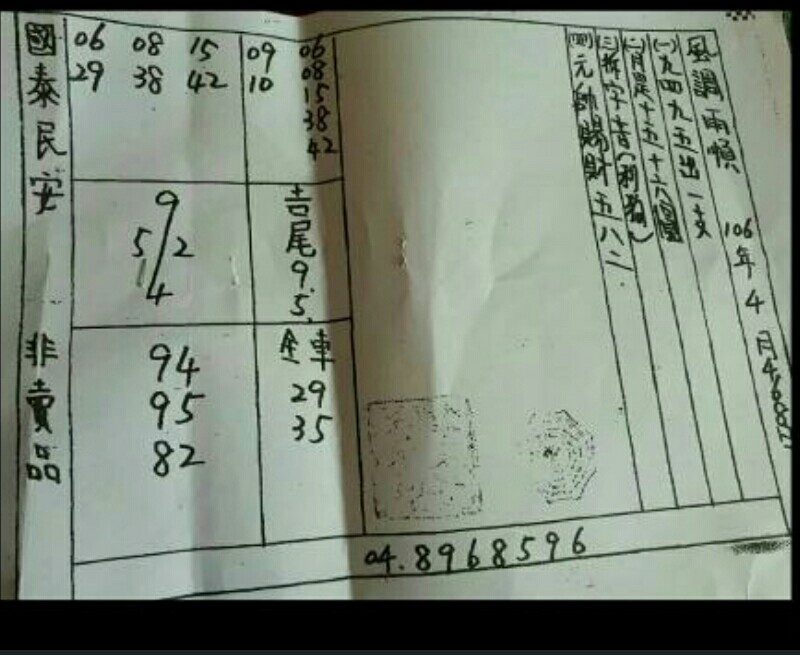 風調雨順 106年4月
(一)九四九五出一支
(二)月是十五十六
(三)拆字吉
(四)元帥賜財五八二
09 06
10 08
15
38
42
06 08 15
29 38 42
吉尾
9.
5.
9
5/2
4
全車
29
35
94
95
82
國泰民安 非賣品
04.8968596